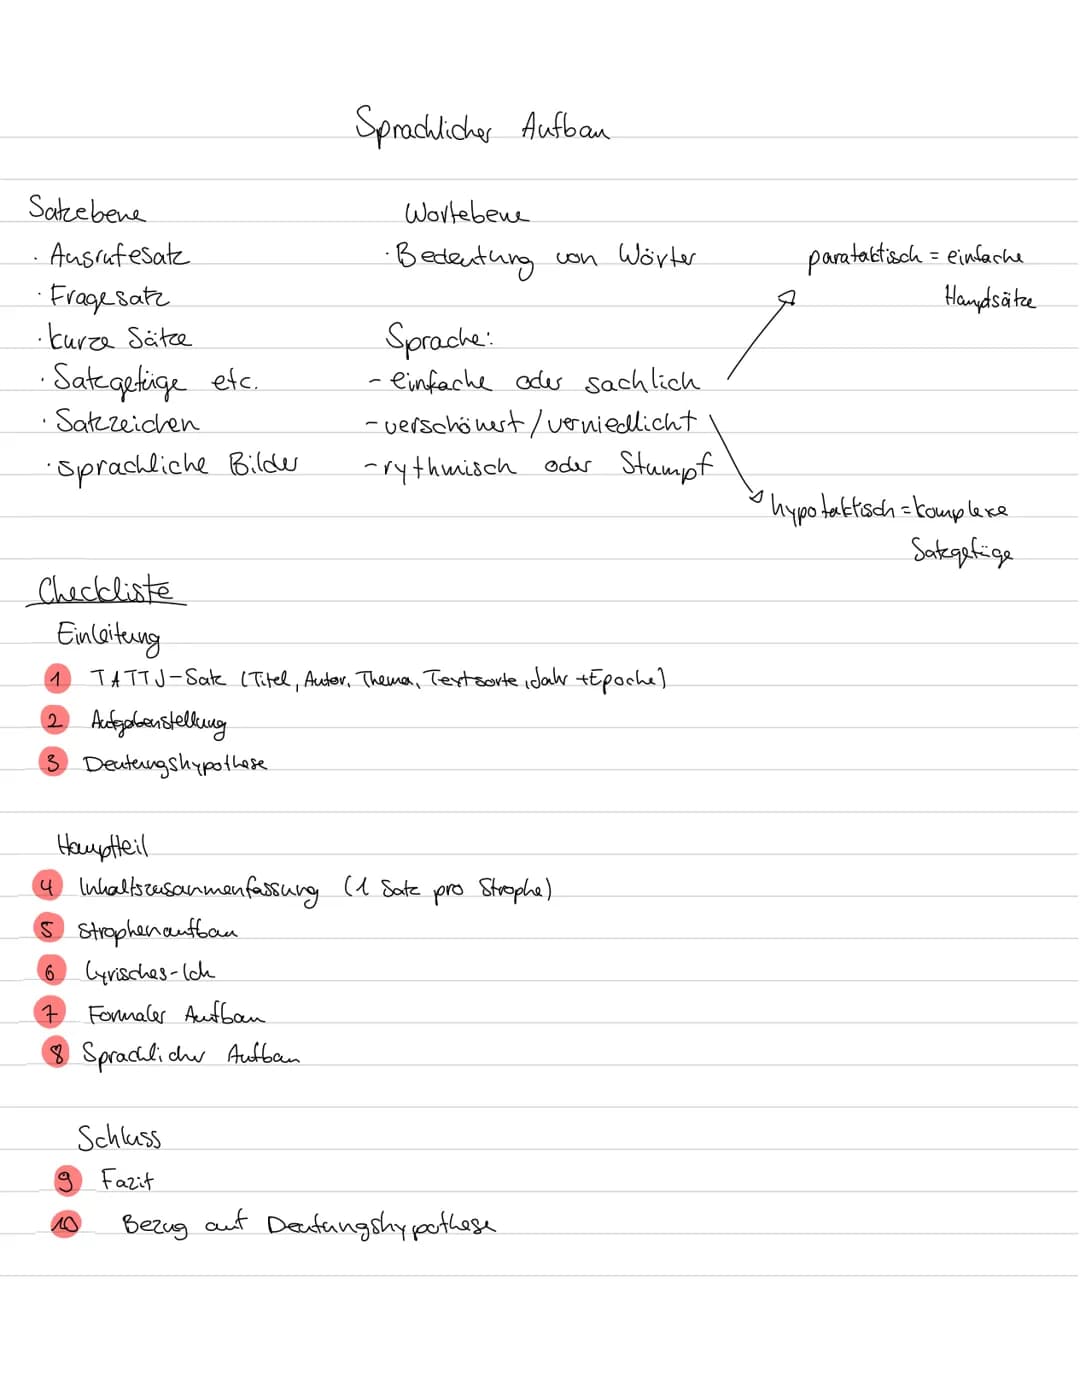 Sprachlicher Aufbau
Satzebene
· Ausrufesatz
· Fragesatz
· kurze Sätze
· Satzgefüge etc.
· Satzzeichen
· sprachliche Bilder
Wortebene
· Bedeutung von Wörter
Sprache:
- einfache oder sachlich
- verschönert/verniedlicht
- rythmisch oder Stumpf
parataktisch = einfache
Hauptsätze
hypotaktisch = komplexe
Satzgefüge
Checkliste
Einleitung
1 TATTJ-Satz (Titel, Autor, Thema, Textsorte, Jahr + Epoche)
2 Aufgabenstellung
3 Deutungshypothese
Hauptteil
4 Inhaltszusammenfassung (1 Satz pro Strophe)
5 Strophenaufbau
6 Lyrisches-Ich
7 Formaler Aufbau
8 Sprachlicher Aufbau
Schluss
9 Fazit
10 Bezug auf Deutungshypothese